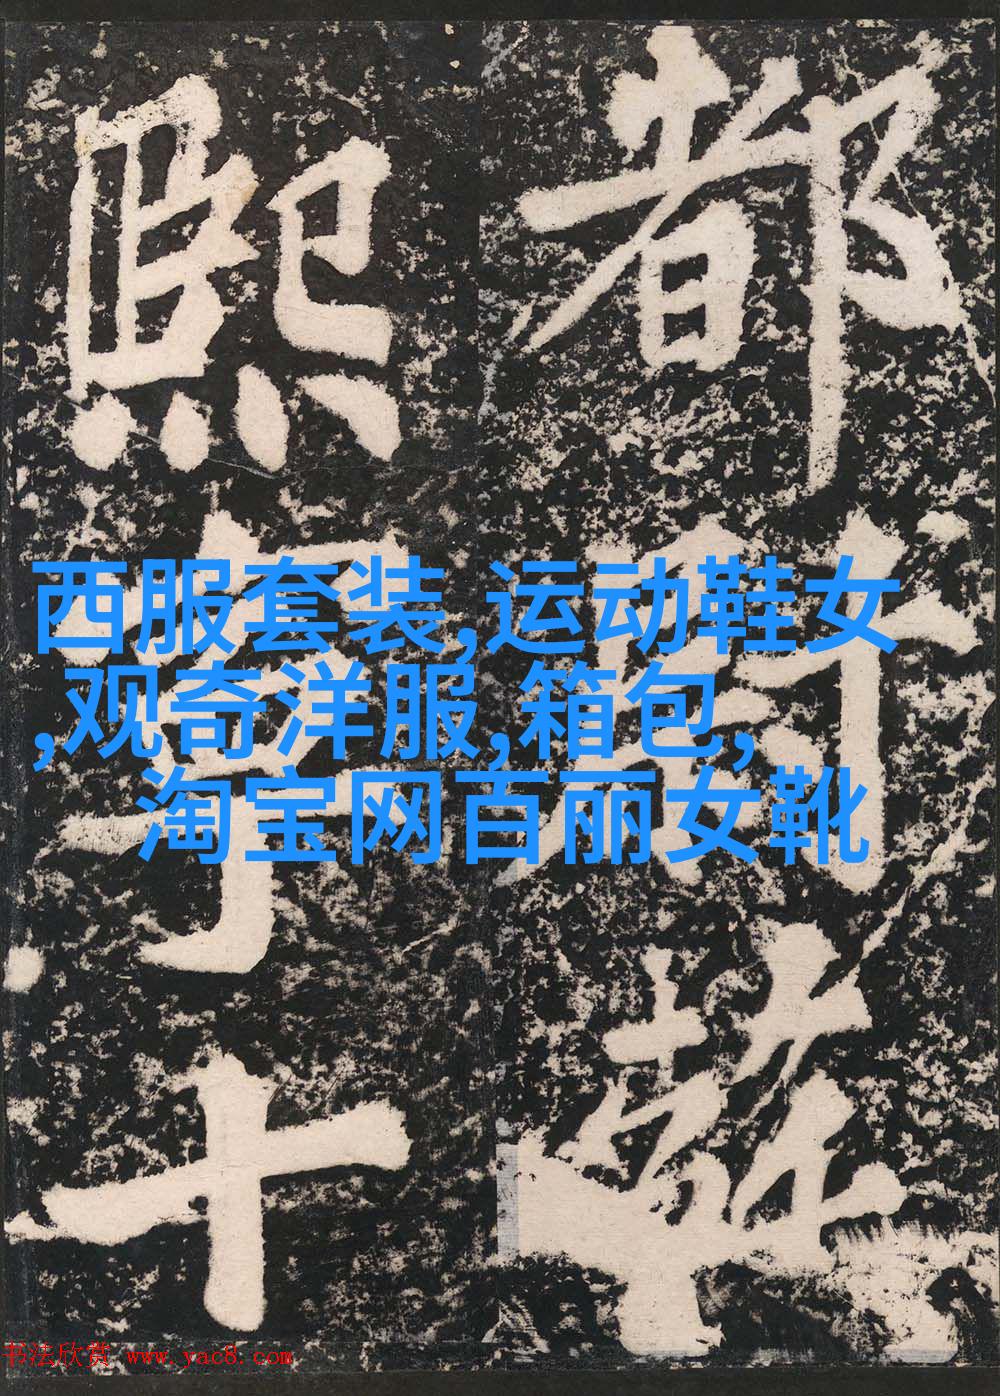 都
熙
十
西服套装,运动鞋女
,观奇洋服,箱包,
淘宝网百丽女靴
书法欣赏 www.yac8.com